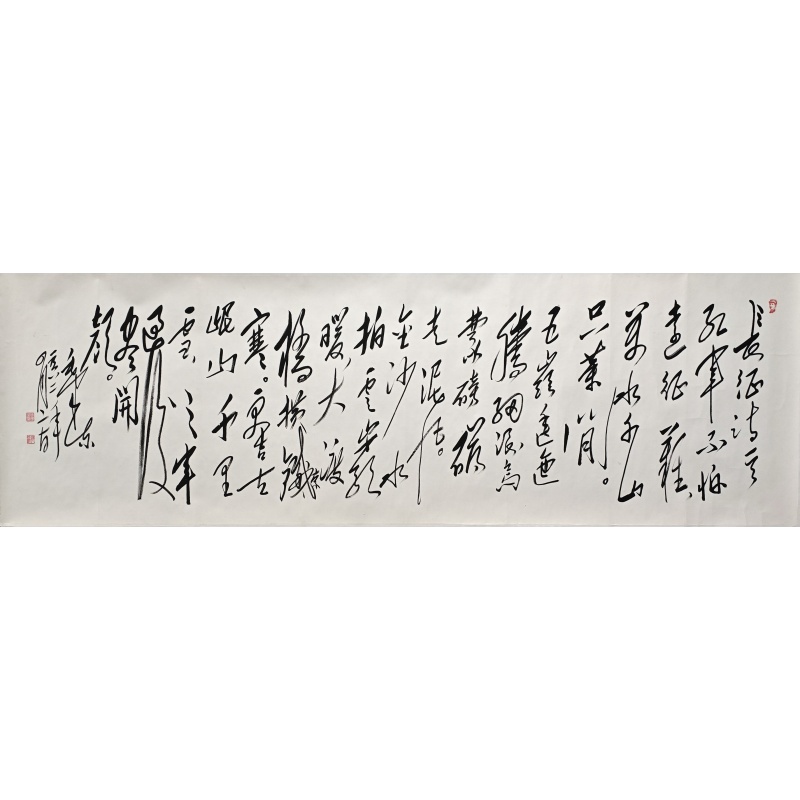 长征诗
红军不怕
远征難
萬水千山
只等閒。
五嶺逶迤
騰細浪烏
蒙磅礴
走泥丸。
金沙水
拍雲崖
暖大渡
橋橫鐵索
寒。更喜
岷山千里
雪三军
過後
盡開
顏。
毛泽东